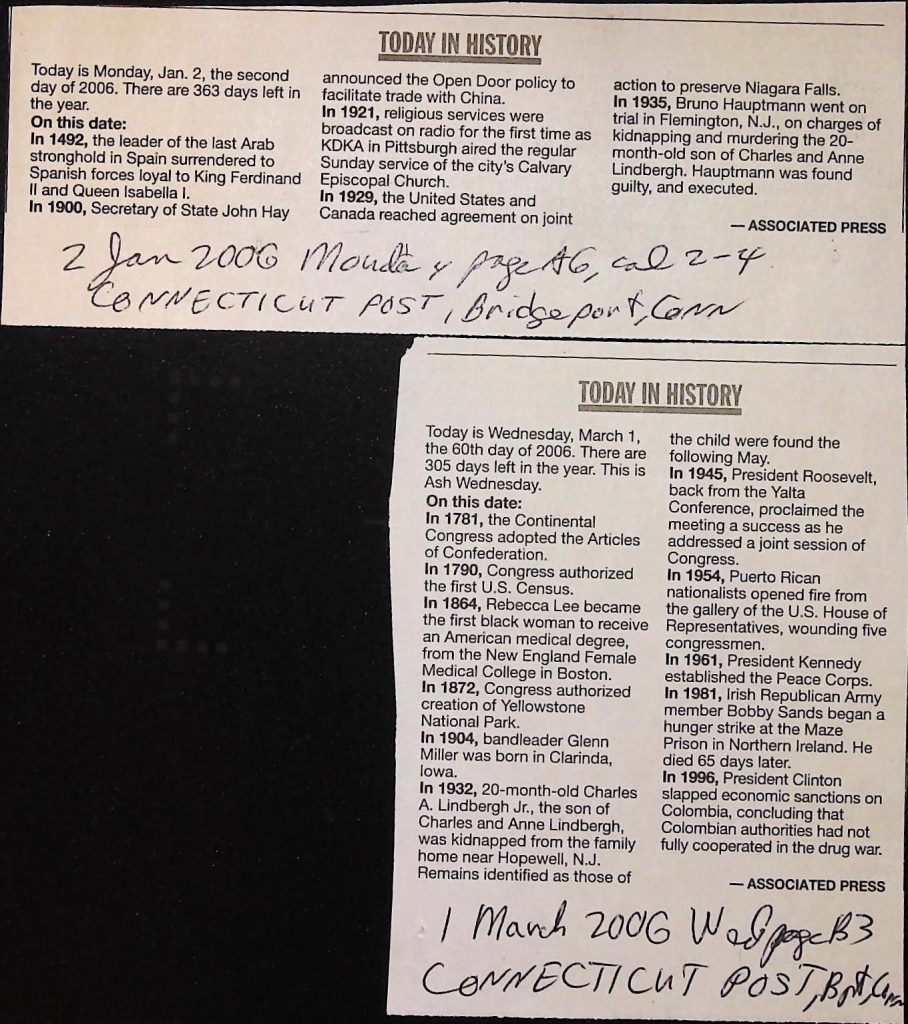 TODAY IN HISTORY
Today is Monday, Jan. 2, the second
day of 2006. There are 363 days left in
the year.
On this date:
In 1492, the leader of the last Arab
stronghold in Spain surrendered to
Spanish forces loyal to King Ferdinand
II and Queen Isabella I.
In 1900, Secretary of State John Hay
announced the Open Door policy to
facilitate trade with China.
In 1921, religious services were
broadcast on radio for the first time as
KDKA in Pittsburgh aired the regular
Sunday service of the city's Calvary
Episcopal Church.
In 1929, the United States and
Canada reached agreement on joint
action to preserve Niagara Falls.
In 1935, Bruno Hauptmann went on
trial in Flemington, N.J., on charges of
kidnapping and murdering the 20-
month-old son of Charles and Anne
Lindbergh. Hauptmann was found
guilty, and executed.
— ASSOCIATED PRESS
2 Jan 2006 Monday page A6, col 2-4
CONNECTICUT POST, Bridgeport, Conn
TODAY IN HISTORY
Today is Wednesday, March 1,
the 60th day of 2006. There are
305 days left in the year. This is
Ash Wednesday.
On this date:
In 1781, the Continental
Congress adopted the Articles
of Confederation.
In 1790, Congress authorized
the first U.S. Census.
In 1864, Rebecca Lee became
the first black woman to receive
an American medical degree,
from the New England Female
Medical College in Boston.
In 1872, Congress authorized
creation of Yellowstone
National Park.
In 1904, bandleader Glenn
Miller was born in Clarinda,
Iowa.
In 1932, 20-month-old Charles
A. Lindbergh Jr., the son of
Charles and Anne Lindbergh,
was kidnapped from the family
home near Hopewell, N.J.
Remains identified as those of
the child were found the
following May.
In 1945, President Roosevelt,
back from the Yalta
Conference, proclaimed the
meeting a success as he
addressed a joint session of
Congress.
In 1954, Puerto Rican
nationalists opened fire from
the gallery of the U.S. House of
Representatives, wounding five
congressmen.
In 1961, President Kennedy
established the Peace Corps.
In 1981, Irish Republican Army
member Bobby Sands began a
hunger strike at the Maze
Prison in Northern Ireland. He
died 65 days later.
In 1996, President Clinton
slapped economic sanctions on
Colombia, concluding that
Colombian authorities had not
fully cooperated in the drug war.
— ASSOCIATED PRESS
1 March 2006 Wed page B3
CONNECTICUT POST, Bpt, Conn